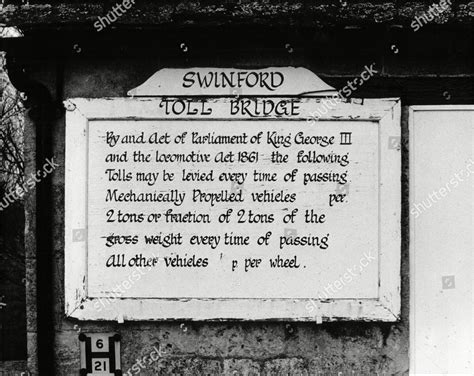 SWINFORD
TOLL BRIDGE
By and Act of Parliament of King George III
and the locomotive Act 1861 the following
Tolls may be levied every time of passing
Mechanically Propelled vehicles per
2 tons or fraction of 2 tons of the
gross weight every time of passing
All other vehicles p per wheel.
6
H
21
shutterstock